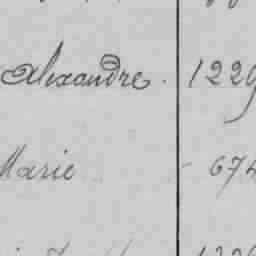 Alexandre. 1229
Marie - 674